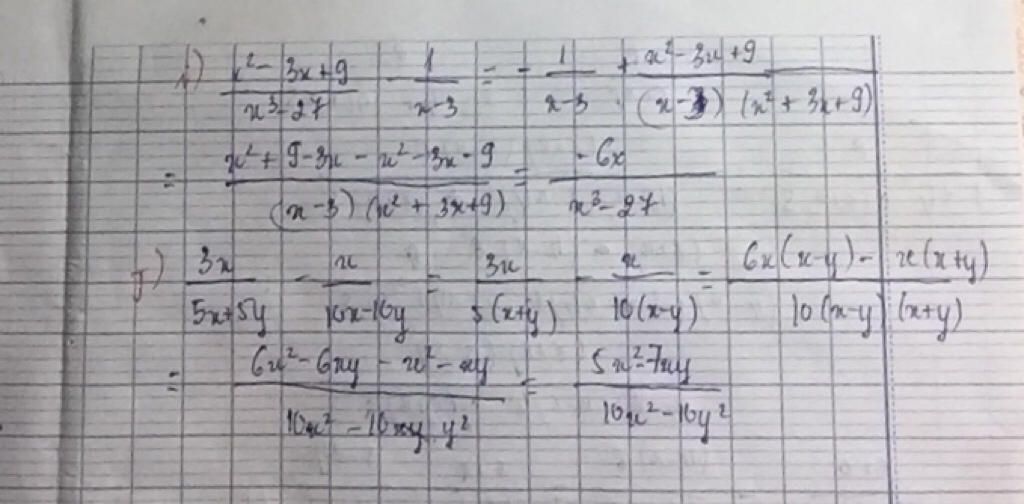 x² - 3x + 9 / x³ - 27 - 1 / x-3 = - 1 / x-3 + x² - 3x + 9 / (x-3) (x² + 3x + 9)
= x² + 9 - 3x - x² - 3x - 9 / (x-3) (x² + 3x + 9) = -6x / x³ - 27
j) 3x / 5x+5y - x / 10x-10y = 3x / 5(x+y) - x / 10(x-y) = 6x(x-y) - x(x+y) / 10(x-y) (x+y)
= 6x² - 6xy - x² - xy / 10x² - 10xy y² = 5x² - 7xy / 10x² - 10y²